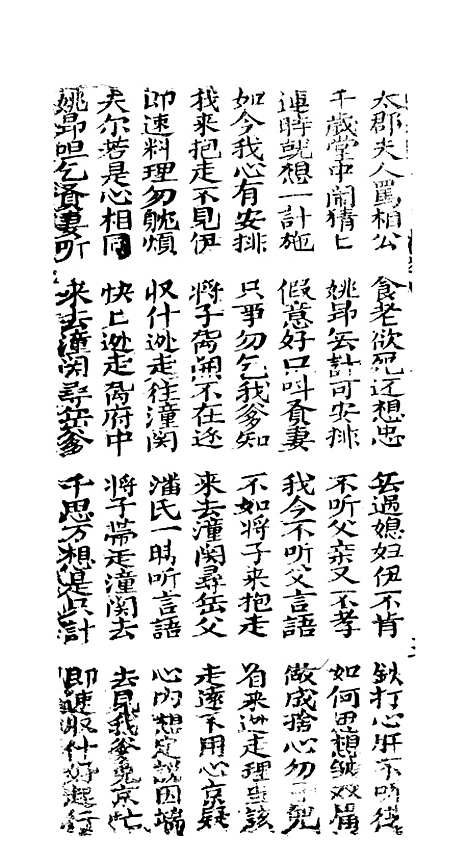 太郡夫人罵相公 食老欲死还想忠 丢過媳妇伊不肯 鉄打心肝不听從
千歳堂中鬧猜乚 姚昂無計可安排 不听父亲又不孝 如何思想皺双眉
連時就想一計施 假意好口叫賢妻 我今不听父言語 做成捨心勿子兒
如今我心有安排 只事勿乞我爹知 不如將子来抱走 省来逃走理当該
我来抱走不見伊 將子 不在这 来去潼関尋岳父 走遠不用心京疑
即速料理勿躭煩 収什逃走往潼関 潘氏一時听言語 心内想定説因端
夫尔若是心相同 快上逃走离府中 將子帶走潼関去 去見我爹免京忙
姚昂呾乞賢妻听 来去潼関尋岳爹 千思万想是只計 即速収什好起行